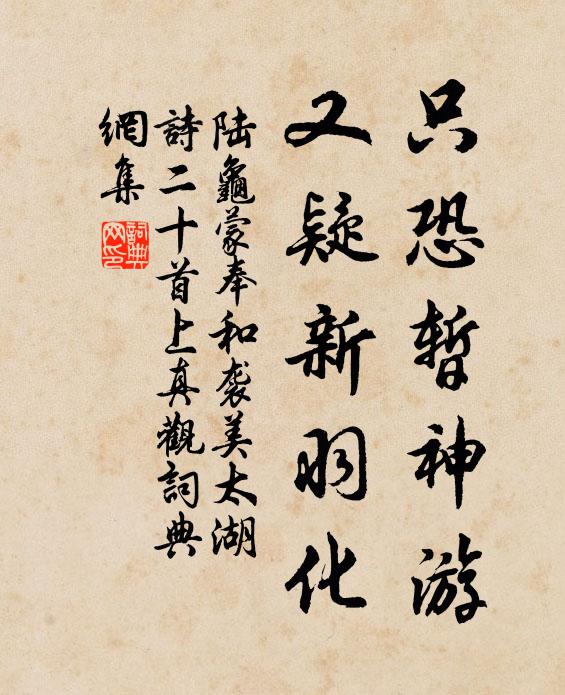 只恐暫神游
又疑新羽化
陆龜蒙奉和袭美太湖
詩二十首上真觀詞典
網集
詞典
网印